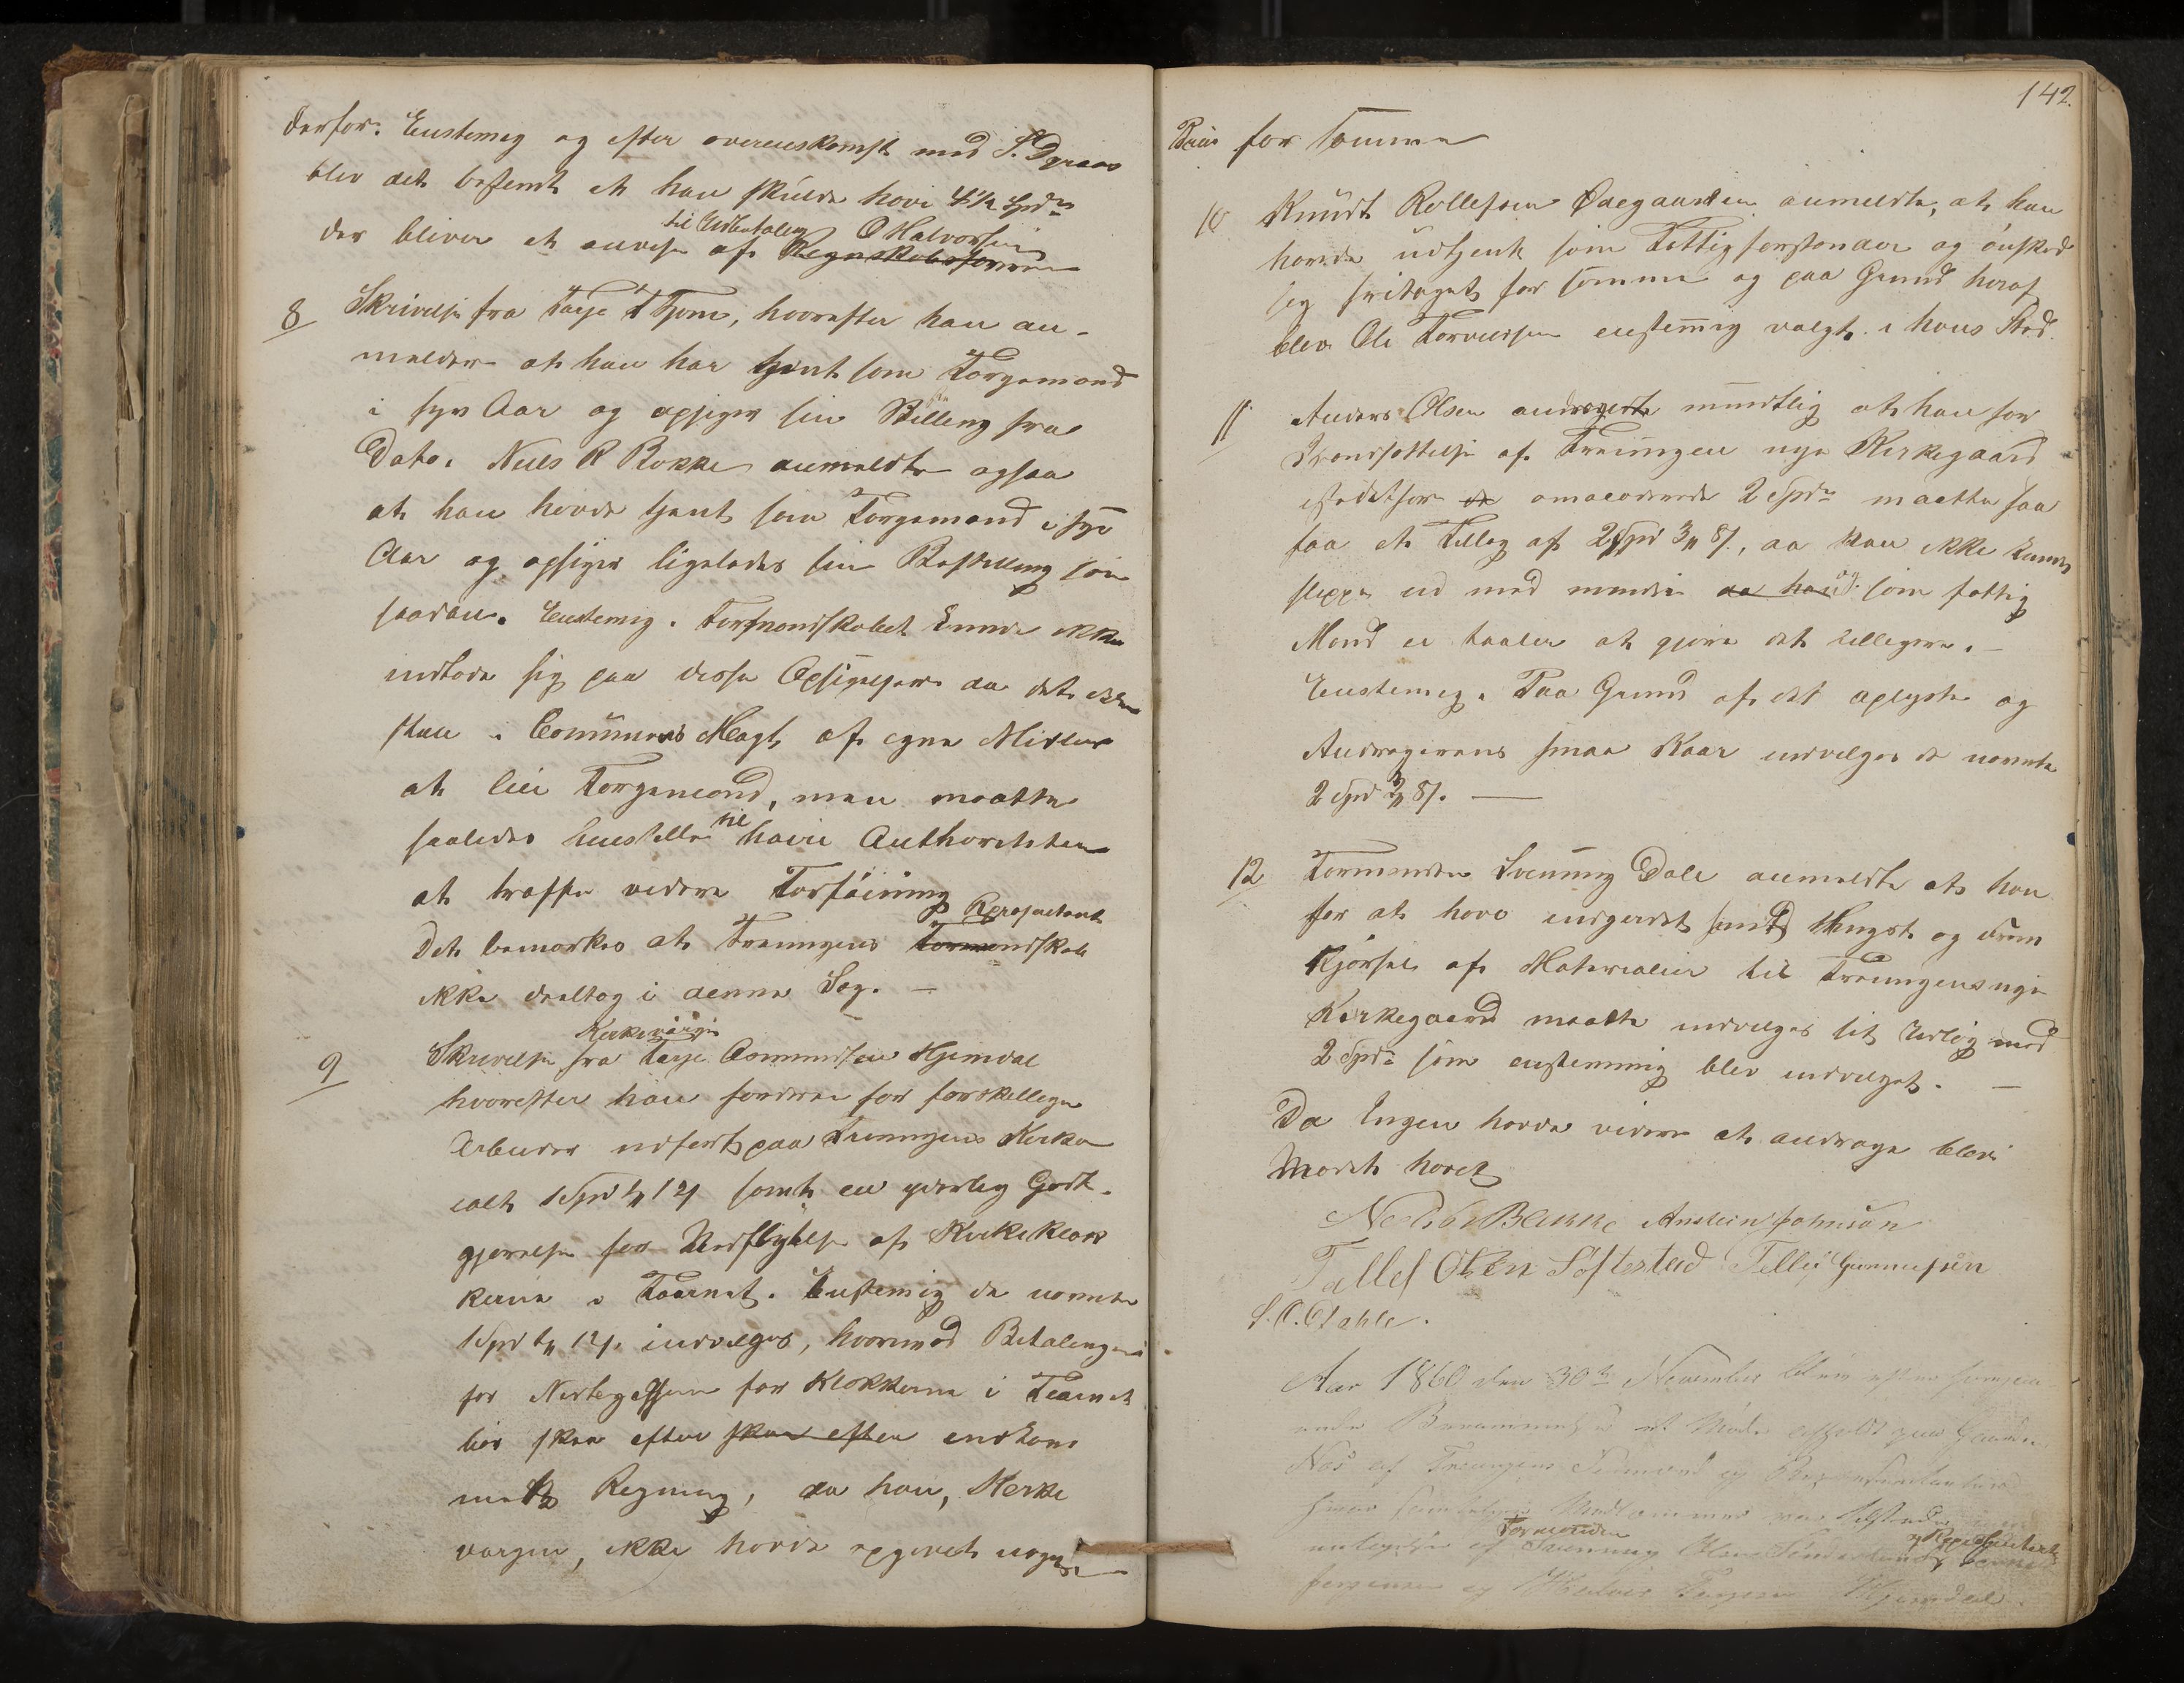 derfor. Enstemig og efter overenskomst med S. Dynaas
blev det bestemt at han skulde have 4 1/2 Spd
der bliver at anvise af til Udbetaling O Halvorsen
8 Skrivelse fra Tarje T Tjom, hvorefter han an-
melder at han har tjent som Torgemand
i syv Aar og opsiger sin Stilling fra
Dato. Niels R Bakke anmeldte ogsaa
at han havde tjent som Torgemand i syv
Aar og opsiger ligeledes sin Bestilling som
saadan. Enstemig. Formandskabet kunde ikke
indlade sig paa disse Opsigelser da det ikke
staar i Communens Magt af egne Midler
at leie Torgemænd, men maatte
saaledes henstille til høiere Authoriteter
at træffe videre Forføining
Det bemærkes at Treungens Repræsentant
ikke deeltog i denne Sag. —
9 Skrivelse fra Kirkeværge Tarje Aamundsen Hjemdal
hvorefter han fordrer for forskjellige
Arbeider udført paa Treungens Kirke
ialt 1 Spd 4 " 12 s samt en yderlig Godt-
gjørelse for Nedflyttelse af Kirkeklok
kerne i Taarnet. Enstemig de nævnte
1 Spd 4 " 12 s. indvilges, hvorimod Betalingen
for Nedlæggelsen for Klokkerne i Taarnet
bør skee efter skee efter indkom
met Regning, da han, Kirke
værgen, ikke havde opgivet nogen
142.
Priis for samme
10 Knudt Rollefsen Ødegaarden anmeldte, at han
havde udtjent som Fattigforstander og ønskede
sig fritaget for samme og paa Grund heraf
blev Ole Torversen enstemig valgt i hans Sted.
11 Anders Olsen andragerte mundtlig at han for
Istandsættelse af Treungen nye Kirkegaard
istedetfor de omacorderede 2 Spd maatte faa
faa et Tillæg af 2 Spd 3 " 8 s., da han ikke kunde
slippe ud med mindre da han og som fattig
Mand ei taaler at gjøre det billigere. —
Enstemig. Paa Grund af det oplyste og
Andragerens smaa Kaar indvilges de nævnte
2 Spd 3 " 8 s. —
12 Formanden Svenung Dale anmeldte at han
for at have indgjerdet samt Hengst og frem
Kjørsel af Materialier til Treungens nye
Kirkegaard maatte indvilges sit Udlæg med
2 Spd som enstemmig blev indvilget. —
Da Ingen havde videre at andrage blev
Mødet hævet
Neels R Bakke Anstein Johnsen
Tallef Olsen Töftestad Tellef Gunnufsen
S. O. Dahle.
Aar 1860 den 30te November blev efter foregaa
ende Berammelse et Møde afholdt paa Gaarden
Næs af Treungens Formænd og Repræsentanter
hvor samtlige Medlemmer var tilstede
undtagelse af Formanden Svenung Olsen og Repræsentant
Jørgensen og Halvor Tarjesen Hjemdal.